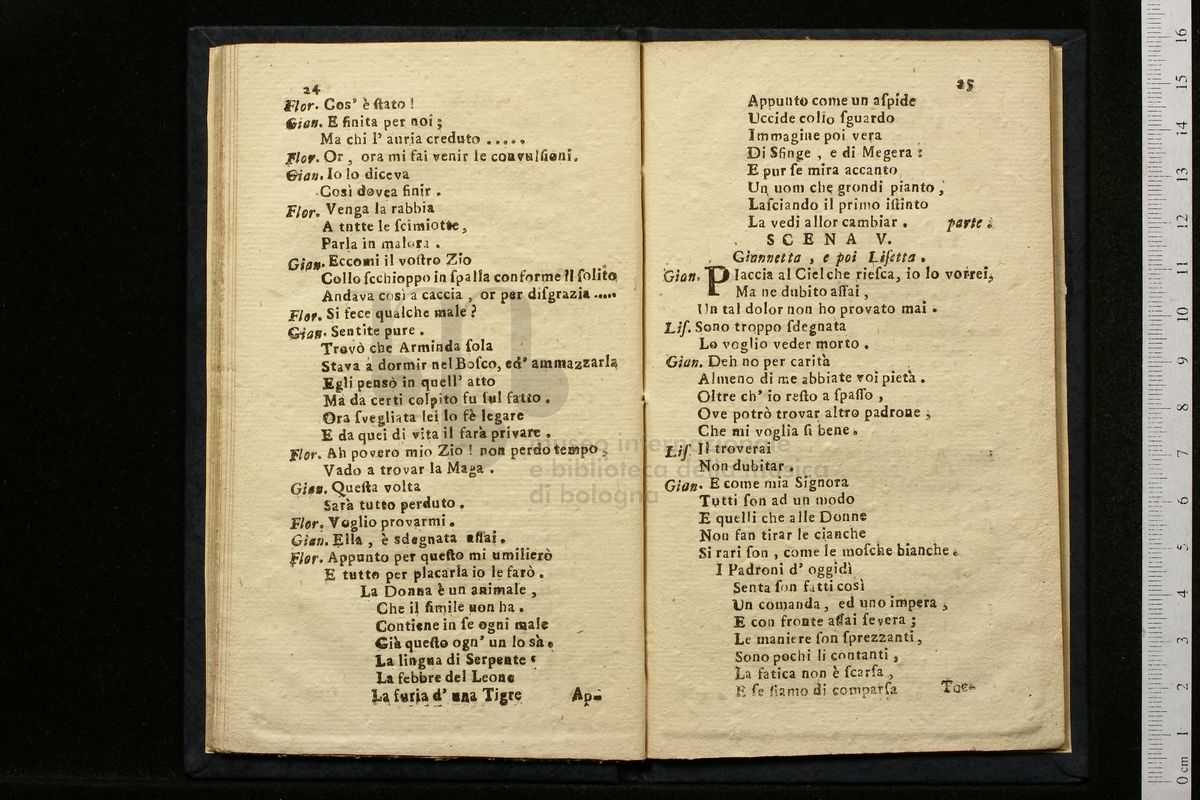 24
Flor. Cos' è ſtato !
Gian. E finita per noi ;
Ma chi l' auria creduto .....
Flor. Or , ora mi fai venir le convulſioni.
Gian. Io lo diceva
Così dovea finir .
Flor. Venga la rabbia
A tutte le ſcimiotte,
Parla in malora .
Gian. Eccomi il voſtro Zio
Collo ſcchioppo in ſpalla conforme il ſolito
Andava così a caccia , or per diſgrazia .....
Flor. Si fece qualche male ?
Gian. Sentite pure .
Trovò che Arminda ſola
Stava a dormir nel Boſco, ed' ammazzarla
Egli pensò in quell' atto
Ma da certi colpito fu ſul fatto .
Ora ſvegliata lei lo fè legare
E da quei di vita il farà privare .
Flor. Ah povero mio Zio ! non perdo tempo ,
Vado a trovar la Maga .
Gian. Queſta volta
Sarà tutto perduto .
Flor. Voglio provarmi .
Gian. Ella , è sdegnata aſſai .
Flor. Appunto per queſto mi umilierò
E tutto per placarla io le farò .
La Donna è un animale ,
Che il ſimile uon ha .
Contiene in ſe ogni male
Già queſto ogn' un lo sà .
La lingua di Serpente
La febbre del Leone
La furia d' una Tigre
Ap-
25
Appunto come un aſpide
Uccide collo ſguardo
Immagine poi vera
Di Sfinge , e di Megera :
E pur ſe mira accanto
Un uom che grondi pianto ,
Laſciando il primo iſtinto
La vedi allor cambiar . parte .
SCENA V.
Giannetta , e poi Liſetta .
Gian. PIaccia al Ciel che rieſca, io lo vorrei,
Ma ne dubito aſſai ,
Un tal dolor non ho provato mai .
Liſ. Sono troppo ſdegnata
Lo voglio veder morto .
Gian. Deh no per carità
Almeno di me abbiate voi pietà .
Oltre ch' io reſto a ſpaſſo ,
Ove potrò trovar altro padrone ,
Che mi voglia ſi bene .
Liſ. Il troverai
Non dubitar .
Gian. E come mia Signora
Tutti ſon ad un modo
E quelli che alle Donne
Non fan tirar le cianche
Si rari ſon , come le moſche bianche .
I Padroni d' oggidì
Senta ſon fatti così
Un comanda , ed uno impera ,
E con fronte aſſai ſevera ;
Le maniere ſon ſprezzanti ,
Sono pochi li contanti ,
La fatica non è ſcarſa ,
E ſe ſiamo di comparſa
museo internazionale
e biblioteca della musica
di bologna